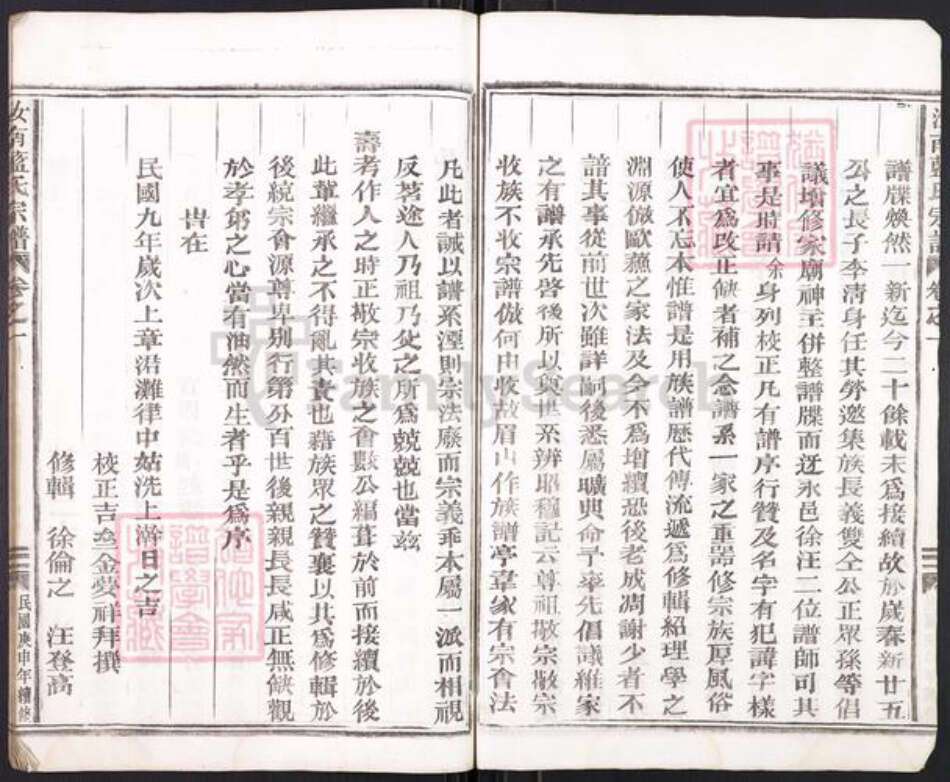 譜牒煥然一新迄今二十餘載未爲接續故於歲春新廿五
公之長子李清身任其勞邀集族長義雙仝公正眾孫等倡
議增修家廟神主併整譜牒而迓永邑徐汪二位譜師司其
事是時請余身列校正凡有譜序行贊及名字有犯諱字樣
者宜爲改正缺者補之念譜系一家之重器修宗族厚風俗
使人不忘本惟譜是用族譜歷代傳流遞爲修輯紹理學之
淵源倣歐蘇之家法及今不爲增續恐後老成凋謝少者不
諳其事從前世次雖詳嗣後悉屬曠典命予率先倡議維家
之有譜承先啓後所以奠世系辨昭穆記云尊祖敬宗敬宗
收族不收宗譜倣何由收故眉山作族譜亭韋家有宗會法
凡此者誠以譜系湮則宗法廢而宗義乖本屬一派而相視
反茗途人乃祖乃父之所爲兢兢也當茲
壽考作人之時正敬宗收族之會數公編葺於前而接續於後
此輩繼承之不得亂其責也藉族眾之贊襄以其爲修輯於
後統宗會源尊卑別行第分百世後親親長長咸正無缺觀
於孝弟之心當有油然而生者乎是爲序
旹在
民國九年歲次上章涒灘律中姑洗上澣日之吉
校正吉 金夢祥拜撰
修輯 徐倫之 汪登高
汝南藍氏宗譜 卷之一
民國庚申年續修
FamilySearch